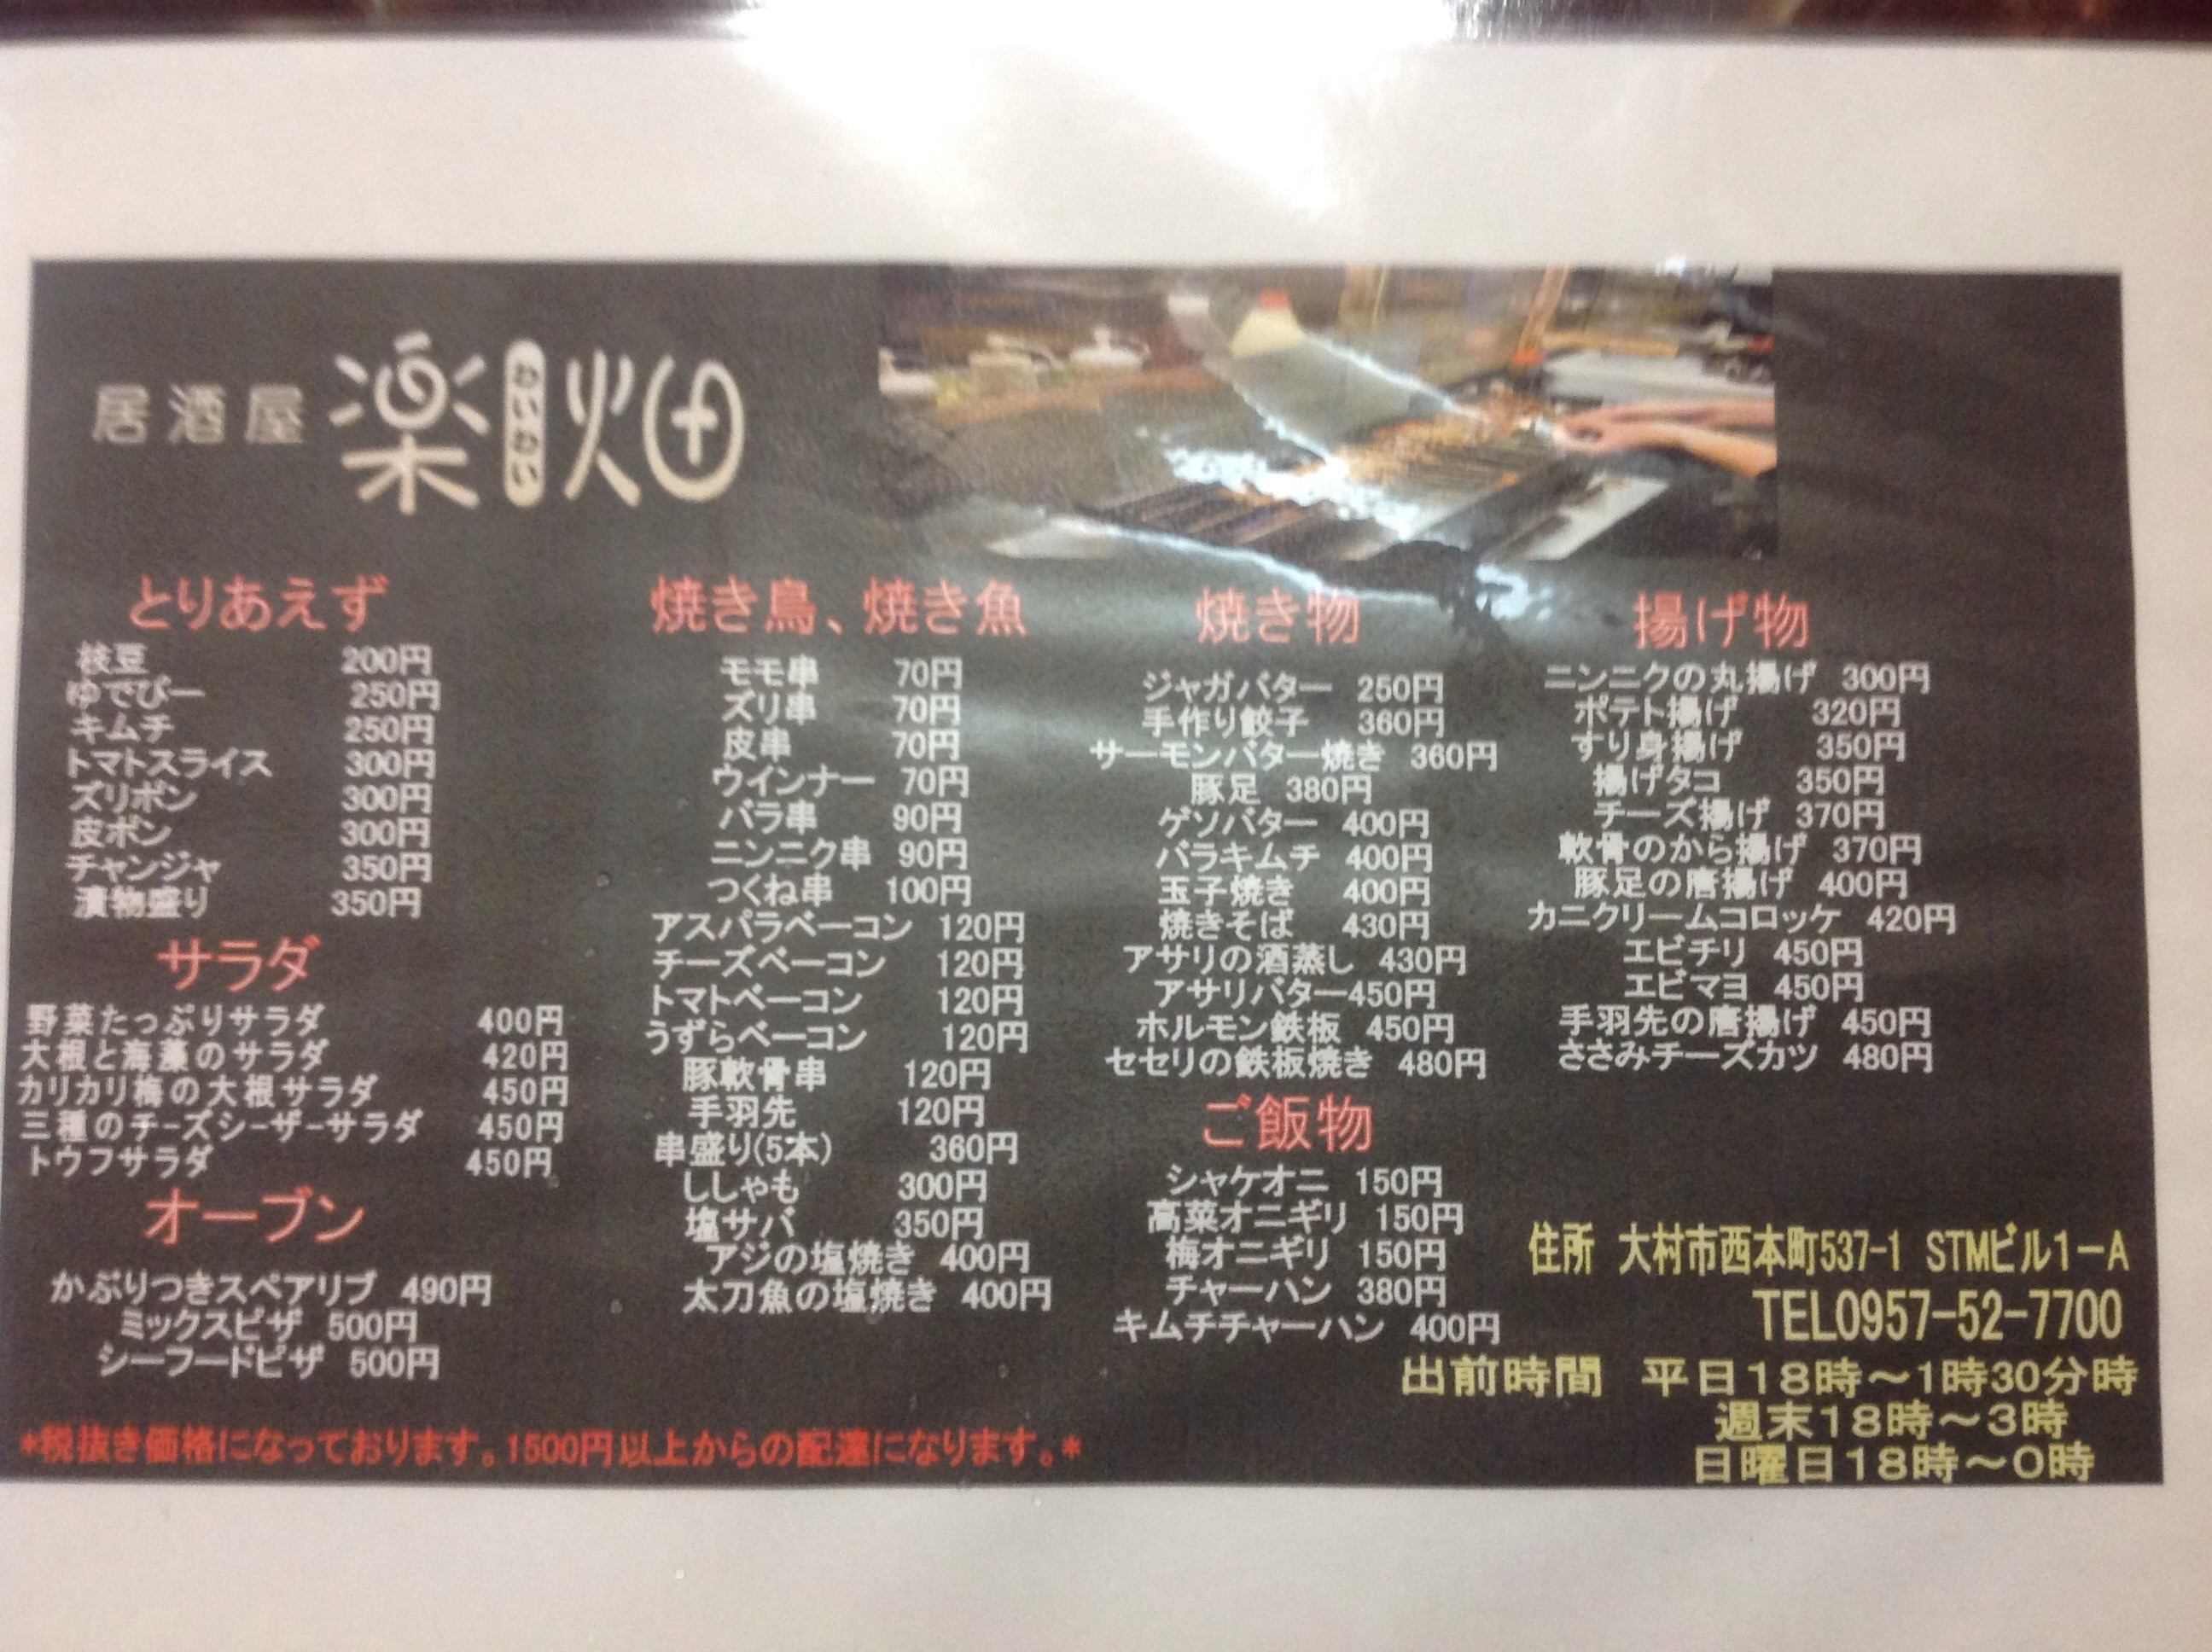 居酒屋 楽畑
わいわい
とりあえず
枝豆 200円
ゆでぴー 250円
キムチ 250円
トマトスライス 300円
ズリポン 300円
皮ポン 300円
チャンジャ 350円
漬物盛り 350円
サラダ
野菜たっぷりサラダ 400円
大根と海藻のサラダ 420円
カリカリ梅の大根サラダ 450円
三種のチーズシーザーサラダ 450円
トウフサラダ 450円
オーブン
かぶりつきスペアリブ 490円
ミックスピザ 500円
シーフードピザ 500円
焼き鳥、焼き魚
モモ串 70円
ズリ串 70円
皮串 70円
ウインナー 70円
バラ串 90円
ニンニク串 90円
つくね串 100円
アスパラベーコン 120円
チーズベーコン 120円
トマトベーコン 120円
うずらベーコン 120円
豚軟骨串 120円
手羽先 120円
串盛り(5本) 360円
ししゃも 300円
塩サバ 350円
アジの塩焼き 400円
太刀魚の塩焼き 400円
焼き物
ジャガバター 250円
手作り餃子 360円
サーモンバター焼き 360円
豚足 380円
ゲソバター 400円
バラキムチ 400円
玉子焼き 400円
焼きそば 430円
アサリの酒蒸し 430円
アサリバター450円
ホルモン鉄板 450円
セセリの鉄板焼き 480円
ご飯物
シャケオニ 150円
高菜オニギリ 150円
梅オニギリ 150円
チャーハン 380円
キムチチャーハン 400円
揚げ物
ニンニクの丸揚げ 300円
ポテト揚げ 320円
すり身揚げ 350円
揚げタコ 350円
チーズ揚げ 370円
軟骨のから揚げ 370円
豚足の唐揚げ 400円
カニクリームコロッケ 420円
エビチリ 450円
エビマヨ 450円
手羽先の唐揚げ 450円
ささみチーズカツ 480円
住所 大村市西本町537-1 STMビル1－A
TEL0957-52-7700
出前時間 平日18時～1時30分時
週末18時～3時
日曜日18時～0時
*税抜き価格になっております。1500円以上からの配達になります。*